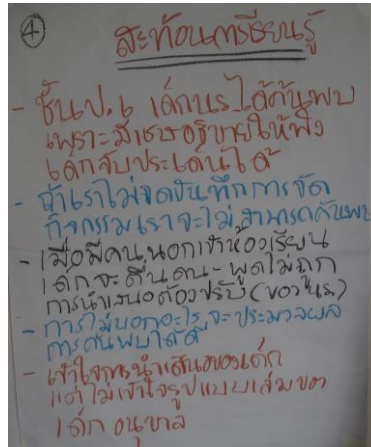 ④
สะท้อนการเรียนรู้
- ชั้นป.6 เด็กนร.ได้ค้นพบ
เพราะมีเธออธิบายให้ฟัง
เด็กจับประเด็นได้
- ถ้าเราไม่จดบันทึกการจัด
กิจกรรมเราจะไม่สามารถค้นพบ
- เมื่อมีคนนอกเข้าห้องเรียน
เด็กจะตื่นตน - พูดไม่ถูก
การนำเสนอต้องปรับ (ของนร)
- การไม่บอกอะไร จะประมวลผล
การค้นพบได้ดี
- เข้าใจการนำเสนอของเด็ก
แต่ไม่เข้าใจรูปแบบเล่มของ
เด็กอนุบาล